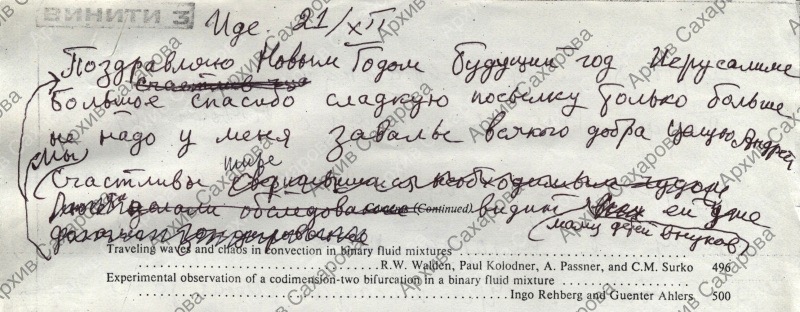 ВИНИТИ 3
Иде 21/XII
Поздравляю Новым Годом Будущий год Иерусалиме
Большое спасибо сладкую посылку только больше
не надо у меня завалы всякого добра Целую Андрей
Мы
мире
Счастливы свершившимся необходимым чудом
делали обследование (Continued) видит ей уже
маму детей внуков
Traveling waves and chaos in convection in binary fluid mixtures
R.W. Walden, Paul Kolodner, A. Passner, and C.M. Surko 496
Experimental observation of a codimension-two bifurcation in a binary fluid mixture
Ingo Rehberg and Guenter Ahlers 500
Архив Сахарова